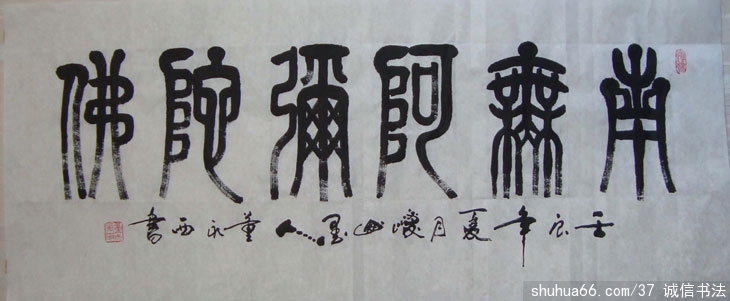 南無阿彌陀佛
壬辰年夏月峻山墨人董永西書
shuhua66.com/37 诚信书法